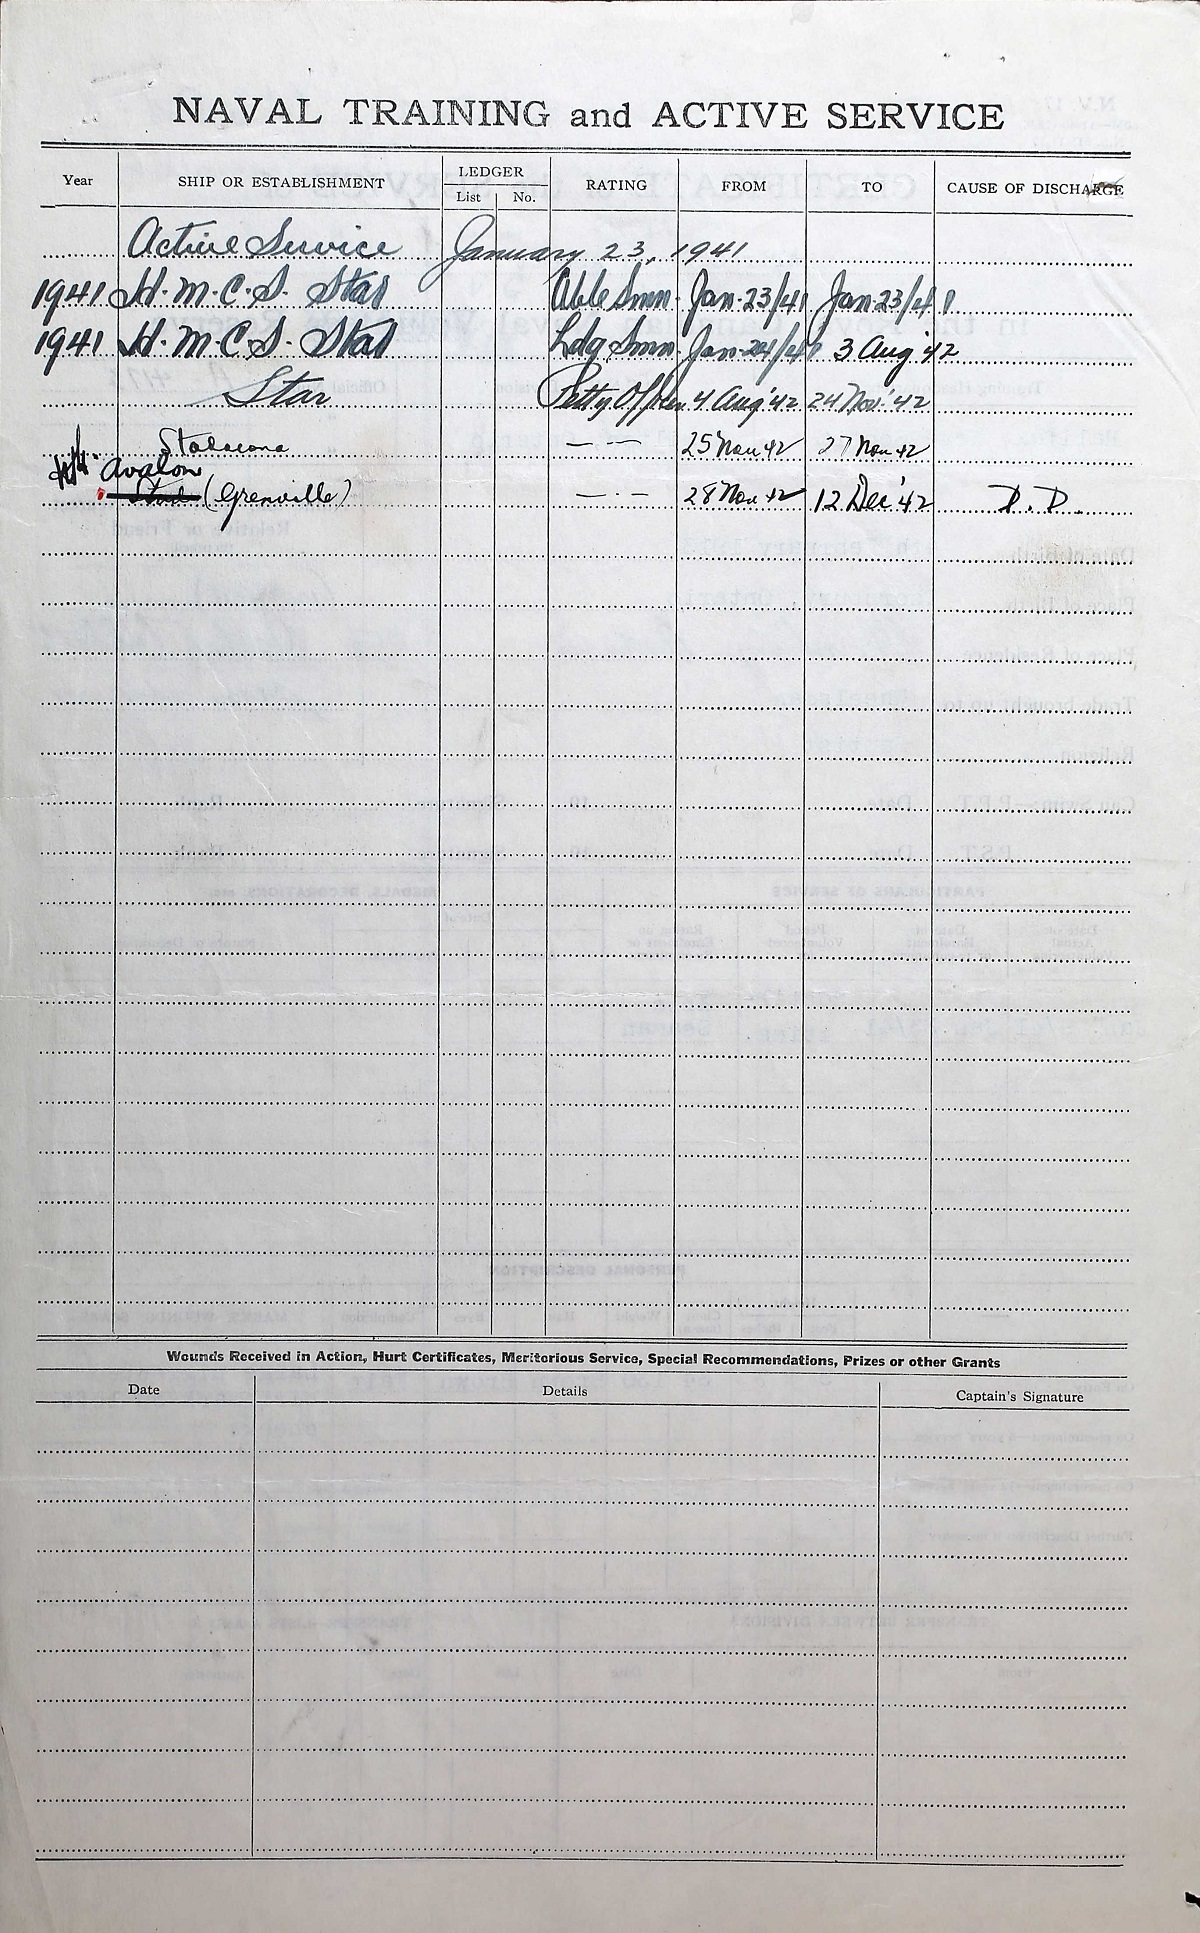 NAVAL TRAINING and ACTIVE SERVICE
Year SHIP OR ESTABLISHMENT LEDGER RATING FROM TO CAUSE OF DISCHARGE
List No.
Active Service January 23, 1941
1941 H.M.C.S. Star Able Smn. Jan. 23/41 Jan. 23/41
1941 H.M.C.S. Star Ldg Smn. Jan. 24/41 3 Aug '42
Star Petty Officer 4 Aug '42 24 Nov. '42
Stadacona — · — 25 Nov 42 27 Nov 42
Avalon
(Grenville) — · — 28 Nov 42 12 Dec '42 D.D.
Wounds Received in Action, Hurt Certificates, Meritorious Service, Special Recommendations, Prizes or other Grants
Date Details Captain's Signature